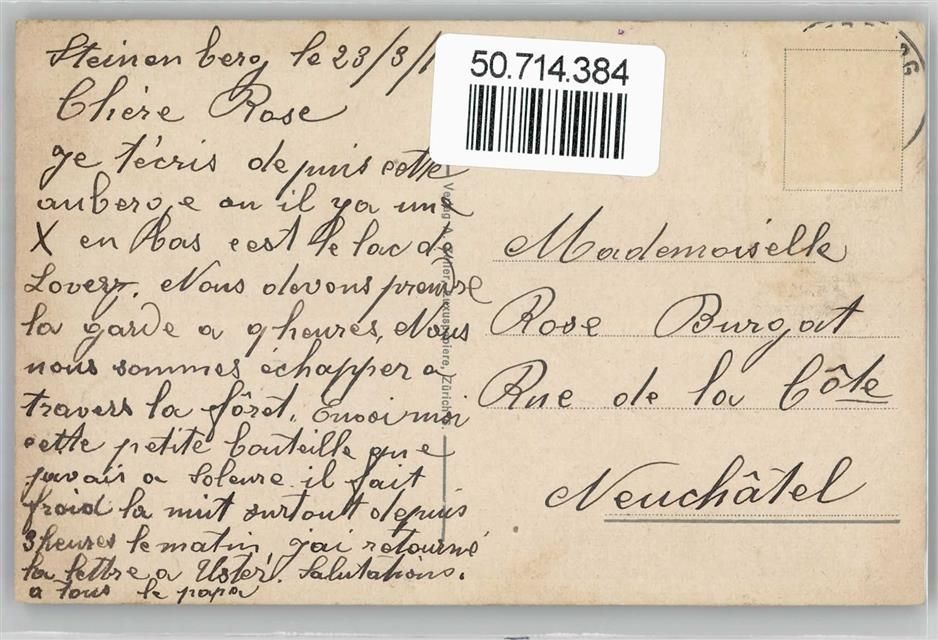 Steinen berg le 23/3/1
Chère Rose
je t'écris depuis cette
auberge ou il ya une
X en bas c est le lac d
Loverz. Nous devons prendre
la garde a 9 heures, Nous
nous sommes échapper a
travers la fôret. Envoi moi
cette petite bouteille que
javais a Soleure il fait
froid la nuit surtout depuis
3 heures le matin, j'ai retourné
la lettre a Uster. Salutations.
a tous le papa
50.714.384
Verlag Luxuspapiere, Zürich
Mademoiselle
Rose Burgat
Rue de la Côte
Neuchâtel